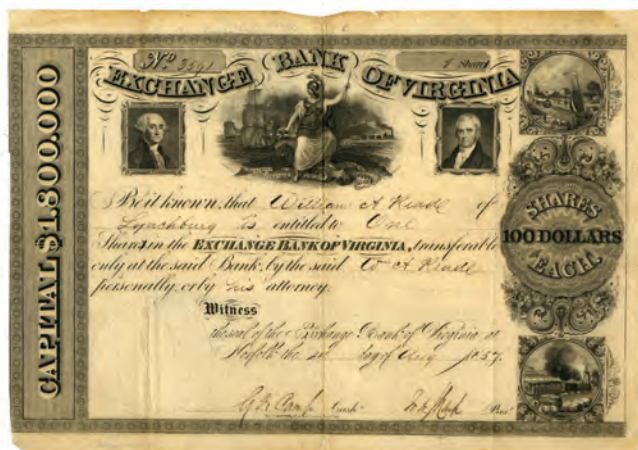 No 3591
1 Share
EXCHANGE BANK OF VIRGINIA
CAPITAL $1.800.000
Be it known, that William A Reade of
Lynchburg is entitled to One
Shares in the EXCHANGE BANK OF VIRGINIA, transferable
only at the said Bank, by the said W A Reade
personally, or by his attorney.
Witness
the seal of the Exchange Bank of Virginia at
Norfolk the day of Aug 1857.
Cash
Pres
SHARES
100 DOLLARS
EACH